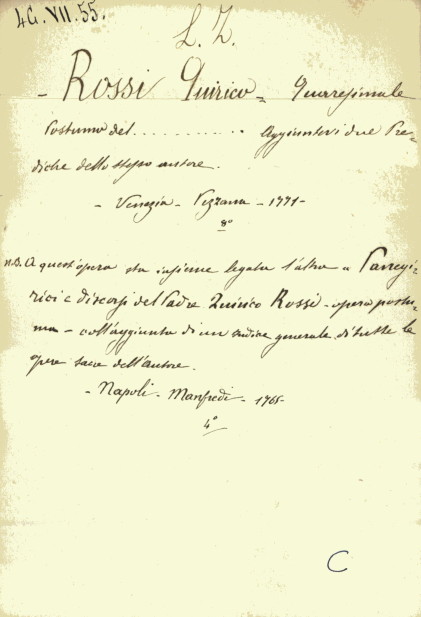 4G. VII. 55.
L. Z.
- Rossi Quirico = Quaresimale
Postumo del ............ Aggiuntovi due Pre=
diche dello stesso autore.
- Venezia - Pezzana - 1771 -
8°
N.B. A quest'opera sta insieme legata l'altra = Panegi=
rici e discorsi del Padre Quirico Rossi - opera postu=
ma - coll'aggiunta di un indice generale di tutte le
opere sacre dell'autore.
- Napoli - Manfredi - 1765 -
4°
C